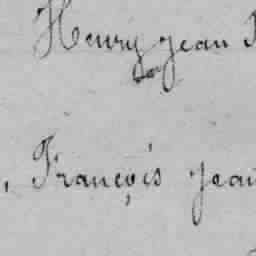 Henry Jean
, François Jean